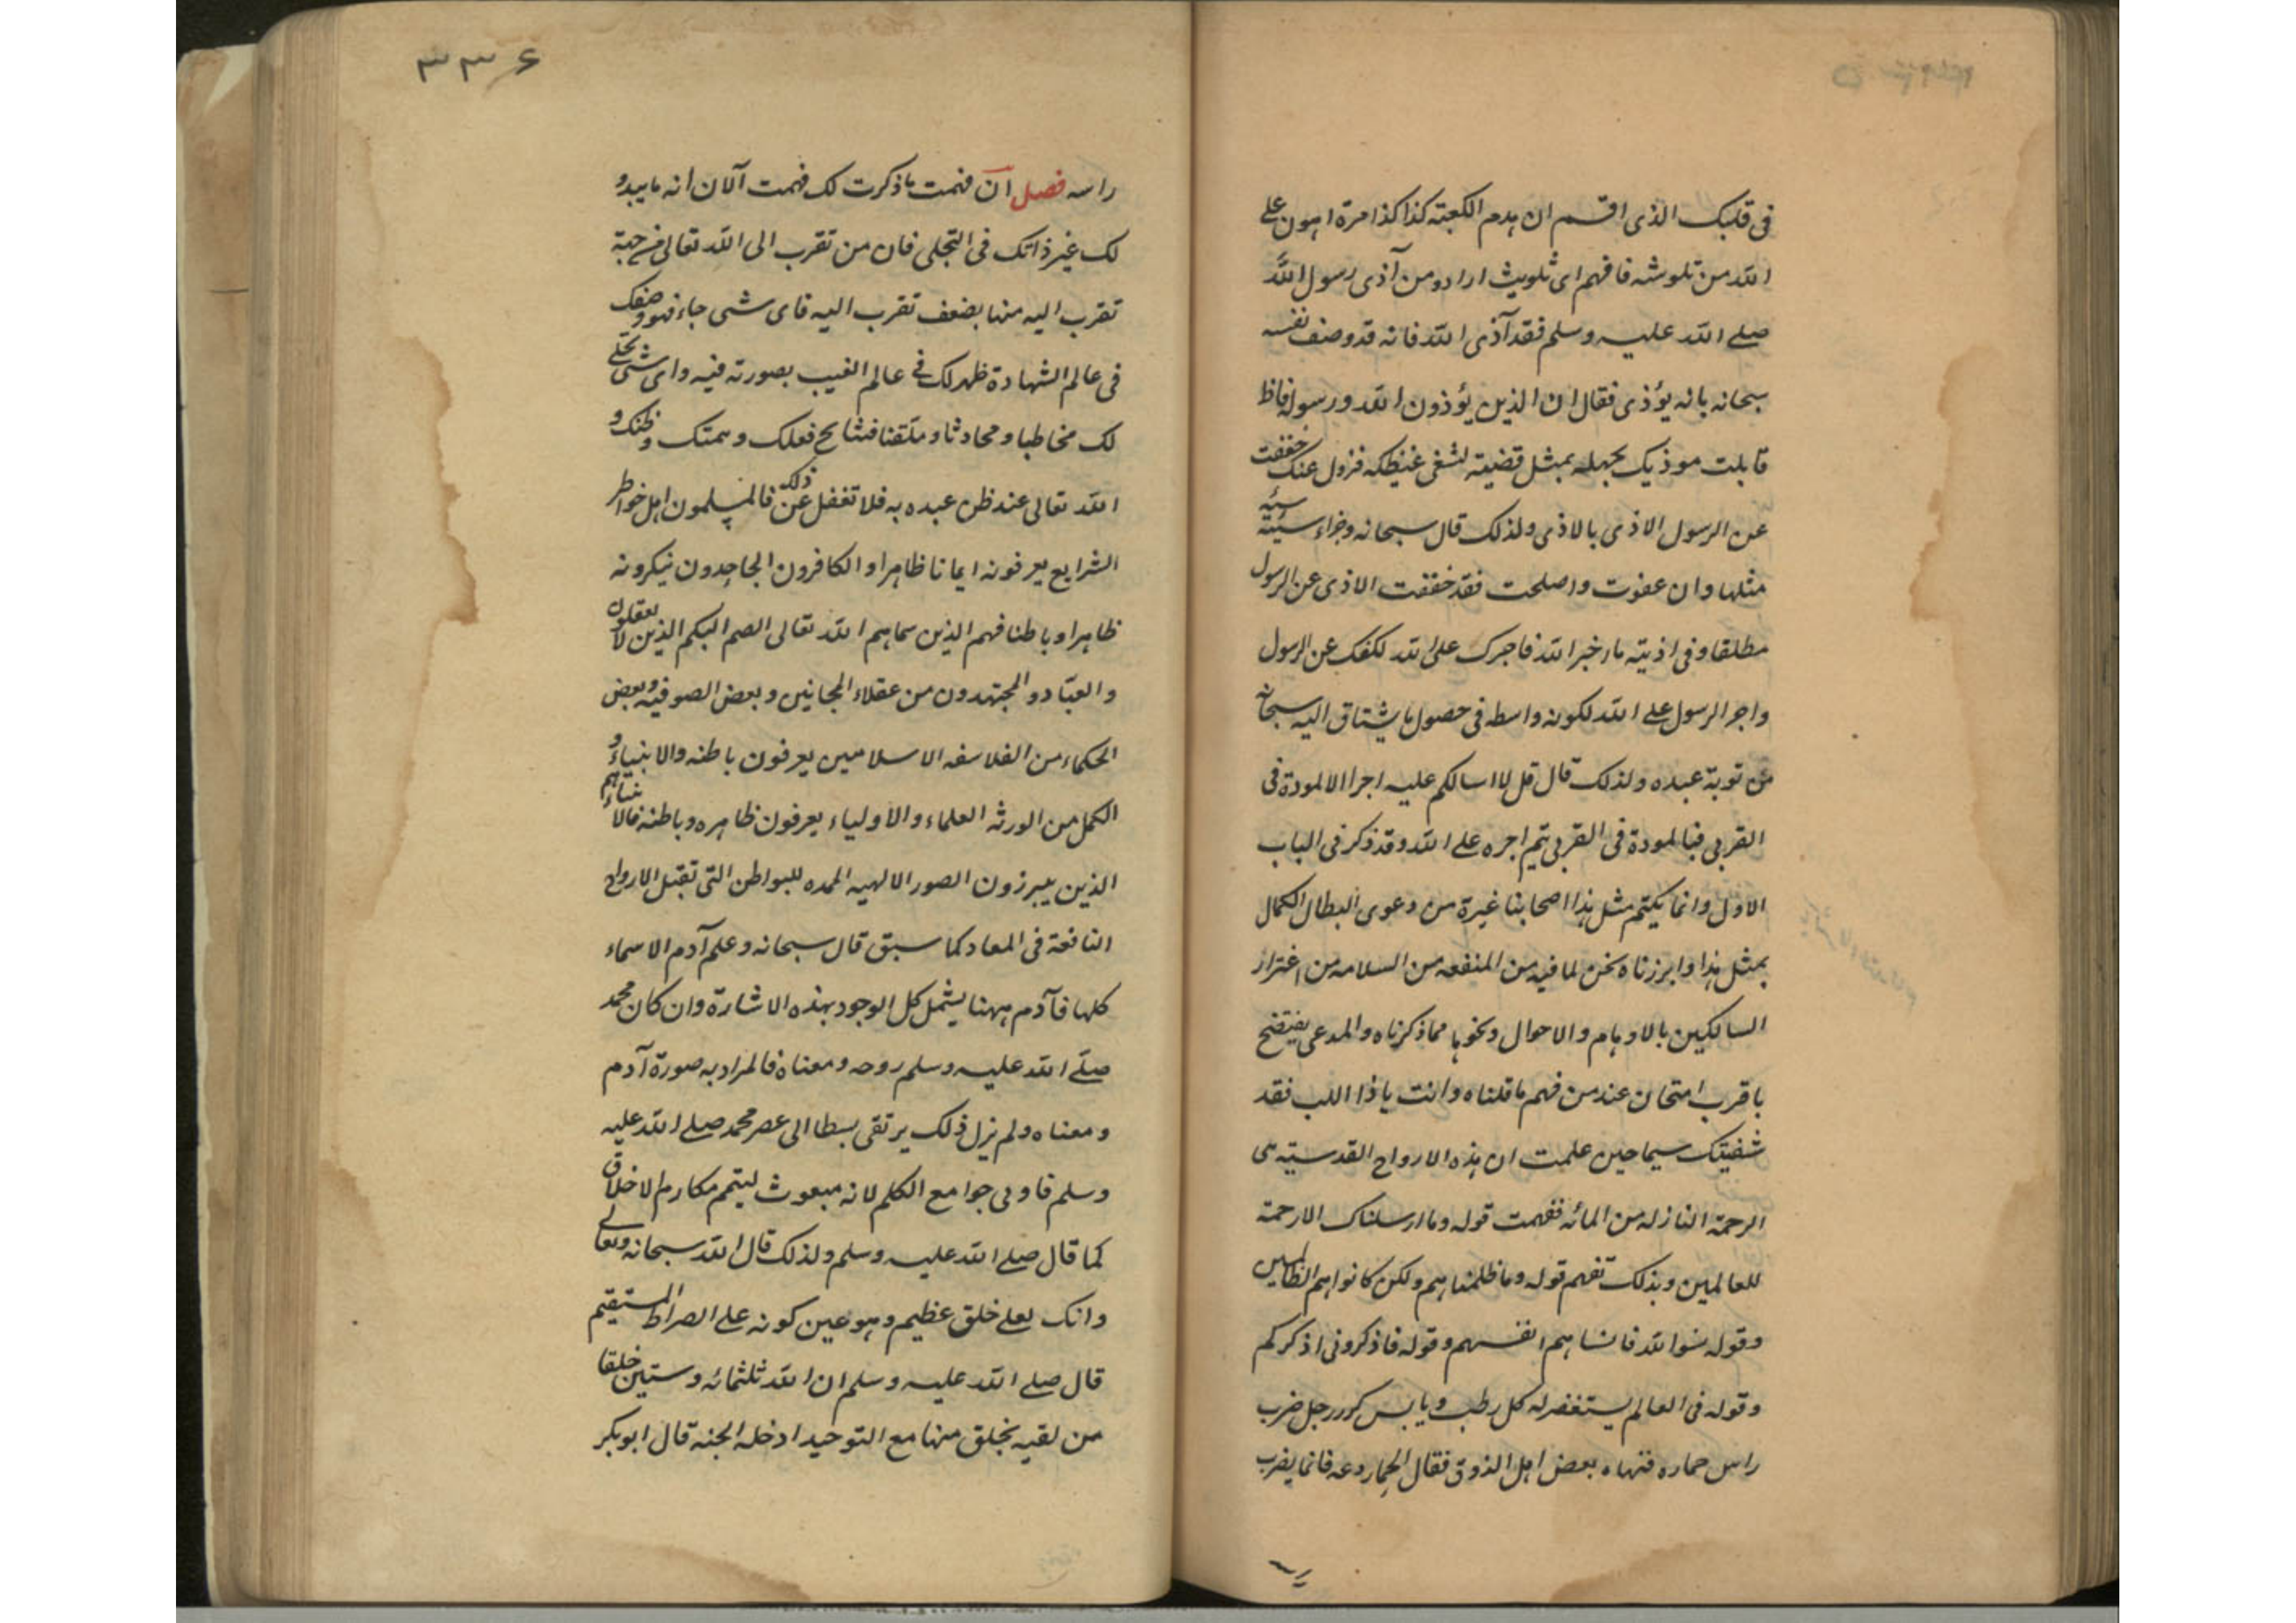 فى قلبك الذى اقسم ان هدم الكعبته كذا كذا مرة اهون على
الله من تلوشه فافهم اى ثلويث ارادو من آذى رسول الله
صلى الله عليه وسلم فقد آذى الله فانه قد وصف نفسه
سبحانه بانه يؤذى فقال ان الذين يؤذون الله ورسوله فاظ
قابلت موذيك بجهله بمثل قضيته لتشفى غيظك فزول عنك خففت
عن الرسول الاذى بالاذى ولذلك قال سبحانه وجزاء سيئة سيئه
مثلها وان عفوت واصلحت فقد خففت الاذى عن الرسول
مطلقا وفى اذيته مار خبر الله فاجرك على الله لكفك عن الرسول
واجر الرسول على الله لكونه واسطه فى حصول ما يشتاق اليه سبحانه
من توبة عبده ولذلك قال قل لا اسالكم عليه اجرا الا المودة فى
القربى فبالمودة فى القربى يتم اجره على الله وقد ذكر فى الباب
الاول وانما يكتم مثل هذا اصحابنا غيرة من دعوى البطال الكمال
بمثل هذا وابرزناه نحن لما فيه من المنفعه من السلامه من اغترار
السالكين بالاوهام والاحوال ونحوها مما ذكرناه والمدعى يفتضح
باقرب امتحان عند من فهم ما قلناه وانت ياذا اللب فقد
شفيتك سيما حين علمت ان هذه الارواح القدسية هى
الرحمة النازله من المائه ففهمت قوله وما ارسلناك الا رحمة
للعالمين وبذلك تفهم قوله وما ظلمناهم ولكن كانوا هم الظالمين
وقوله نسوا الله فانساهم انفسهم وقوله فاذكرونى اذكركم
وقوله فى العالم يستغفر له كل رطب ويابس كور رجل ضرب
راس حماره فنهاه بعض اهل الذوق فقال الحمار دعه فانما يضرب
٣٣٦
راسه فصل ان فهمت ماذكرت لك فهمت آلان انه ما يبدو
لك غير ذاتك فى التجلى فان من تقرب الى الله تعالى من جهة
تقرب اليه منها بضعف تقرب اليه فاى شى جاء فهو وصفك
فى عالم الشهادة ظهر لك فى عالم الغيب بصورته فيه واى شى تجلى
لك مخاطبا ومحادثا وملقنا فنتايج فعلك وهمتك وظنك و
الله تعالى عند ظن عبده به فلا تغفل عن ذلك فالمسلمون اهل خواطر
الشرايع يعرفونه ايمانا ظاهرا والكافرون الجاحدون ينكرونه
ظاهرا وباطنا فهم الذين سماهم الله تعالى الصم البكم الذين لا يعقلون
والعبّاد والمجتهدون من عقلاء المجانين وبعض الصوفيه وبعض
الحكماء من الفلاسفه الاسلاميين يعرفون باطنه والانبياء و
الكمل من الورثه العلماء والاولياء يعرفون ظاهره وباطنه فالانبياء هم
الذين يبرزون الصور الالهيه الممده للبواطن التى تقبل الارواح
النافعة فى المعاد كما سبق قال سبحانه وعلم آدم الاسماء
كلها فآدم ههنا يشمل كل الوجود بهذه الاشارة وان كان محمد
صلى الله عليه وسلم روحه ومعناه فالمراد به صورة آدم
ومعناه ولم يزل ذلك يرتقى بسطا الى عصر محمد صلى الله عليه
وسلم فاوتى جوامع الكلم لانه مبعوث ليتمم مكارم الاخلاق
كما قال صلى الله عليه وسلم ولذلك قال الله سبحانه وتعالى
وانك لعلى خلق عظيم وهو عين كونه على الصراط المستقيم
قال صلى الله عليه وسلم ان الله ثلثمائه وستين خلقا
من لقيه بخلق منها مع التوحيد ادخله الجنه قال ابوبكر